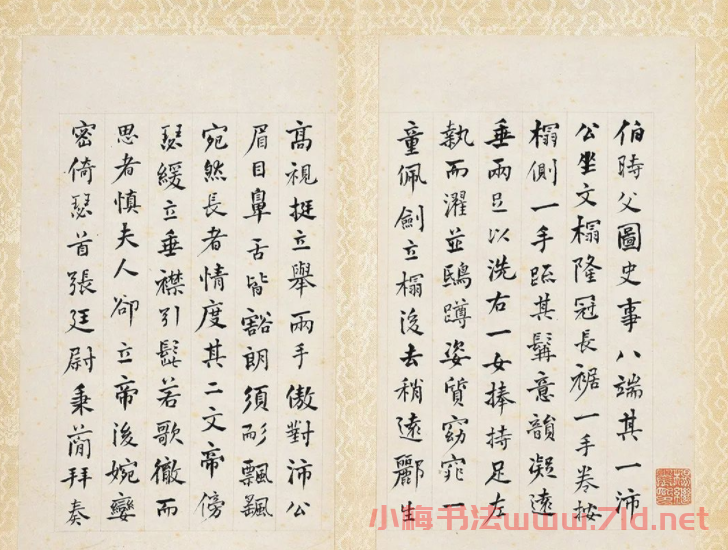 伯時父圖史事八端其一沛
公坐文榻隆冠長裾一手卷按
榻側一手疏其髯意韻凝遠
垂兩足以洗右一女捧持足左
執而濯並鴟蹲姿質窈窕一
童佩劍立榻後去稍遠酈生
高視挺立舉兩手傲對沛公
眉目鼻舌皆豁朗須耏飄
宛然長者情度其二文帝傍
瑟緩立垂襟引髭若歌徹而
思者慎夫人卻立帝後婉孌
密倚瑟首張廷尉秉簡拜奏
小梅书法www.7ld.net